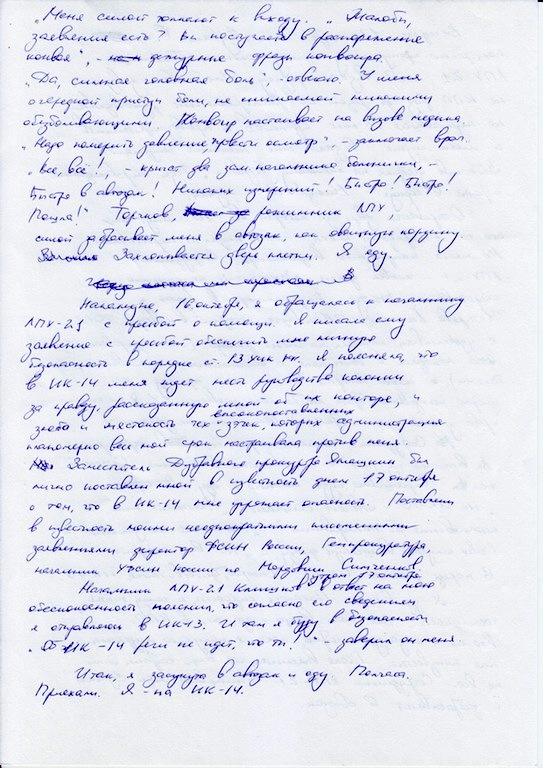 „Меня силой толкают к выходу. „Жалобы,
заявления есть? Вы поступаете в распоряжение
конвоя", - дежурные фразы конвоира.
„Да, сильная головная боль", - отвечаю. У меня
очередной приступ боли, не снимаемой никакими
обезболивающими. Конвоир настаивает на вызове медика.
„Надо померить давление, провести осмотр", - заключает врач.
„Все, всё!", - кричат два зам. начальника больнички, -
Быстро в автозак! Никаких измерений! Быстро! Быстро!
Пошла!" Торчков, режимник ЛПУ,
силой забрасывает меня в автозак, как овощную корзину.
Захлопывается дверь клетки. Я еду.
Накануне, 16 октября, я обращалась к начальнику
ЛПУ-21 с просьбой о помощи. Я писала ему
заявление с просьбой обеспечить мне личную
безопасность в порядке ст. 13 УИК РФ. Я поясняла, что
в ИК-14 меня ждет месть руководства колонии
за правду, рассказанную мной об их конторе, и
злоба и жестокость тех высокопоставленных зэчек, которых администрация
планомерно весь мой срок настраивала против меня.
Заместитель Дубравного прокурора Ямашкин был
лично поставлен мной в известность днем 17 октября
о том, что в ИК-14 мне угрожает опасность. Поставлены
в известность моими неоднократными письменными
заявлениями директор ФСИН России, Генпрокуратура,
начальник УФСИН России по Мордовии Симченков.
Начальник ЛПУ-21 утром 17 октября в ответ на мою
обеспокоенность пояснил, что согласно его сведениям
я отправляюсь в ИК-13. И там я буду в безопасности.
„Об ИК-14 речи не идет, что ты!" - заверил он меня.
Итак, я засунута в автозак и еду. Полчаса.
Приехали. Я - на ИК-14.